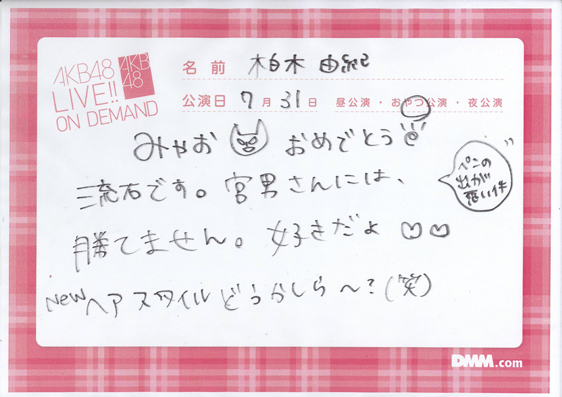 AKB48
LIVE!!
ON DEMAND
AKB
48
名前 柏木由紀
公演日 7月31日 昼公演・おやつ公演・夜公演
みゃお おめでとう
流石です。宮男さんには、
ペンの
出が
悪い件
勝てません。好きだよ♡♡
NEWヘアスタイルどうかしら〜?(笑)
DMM.com